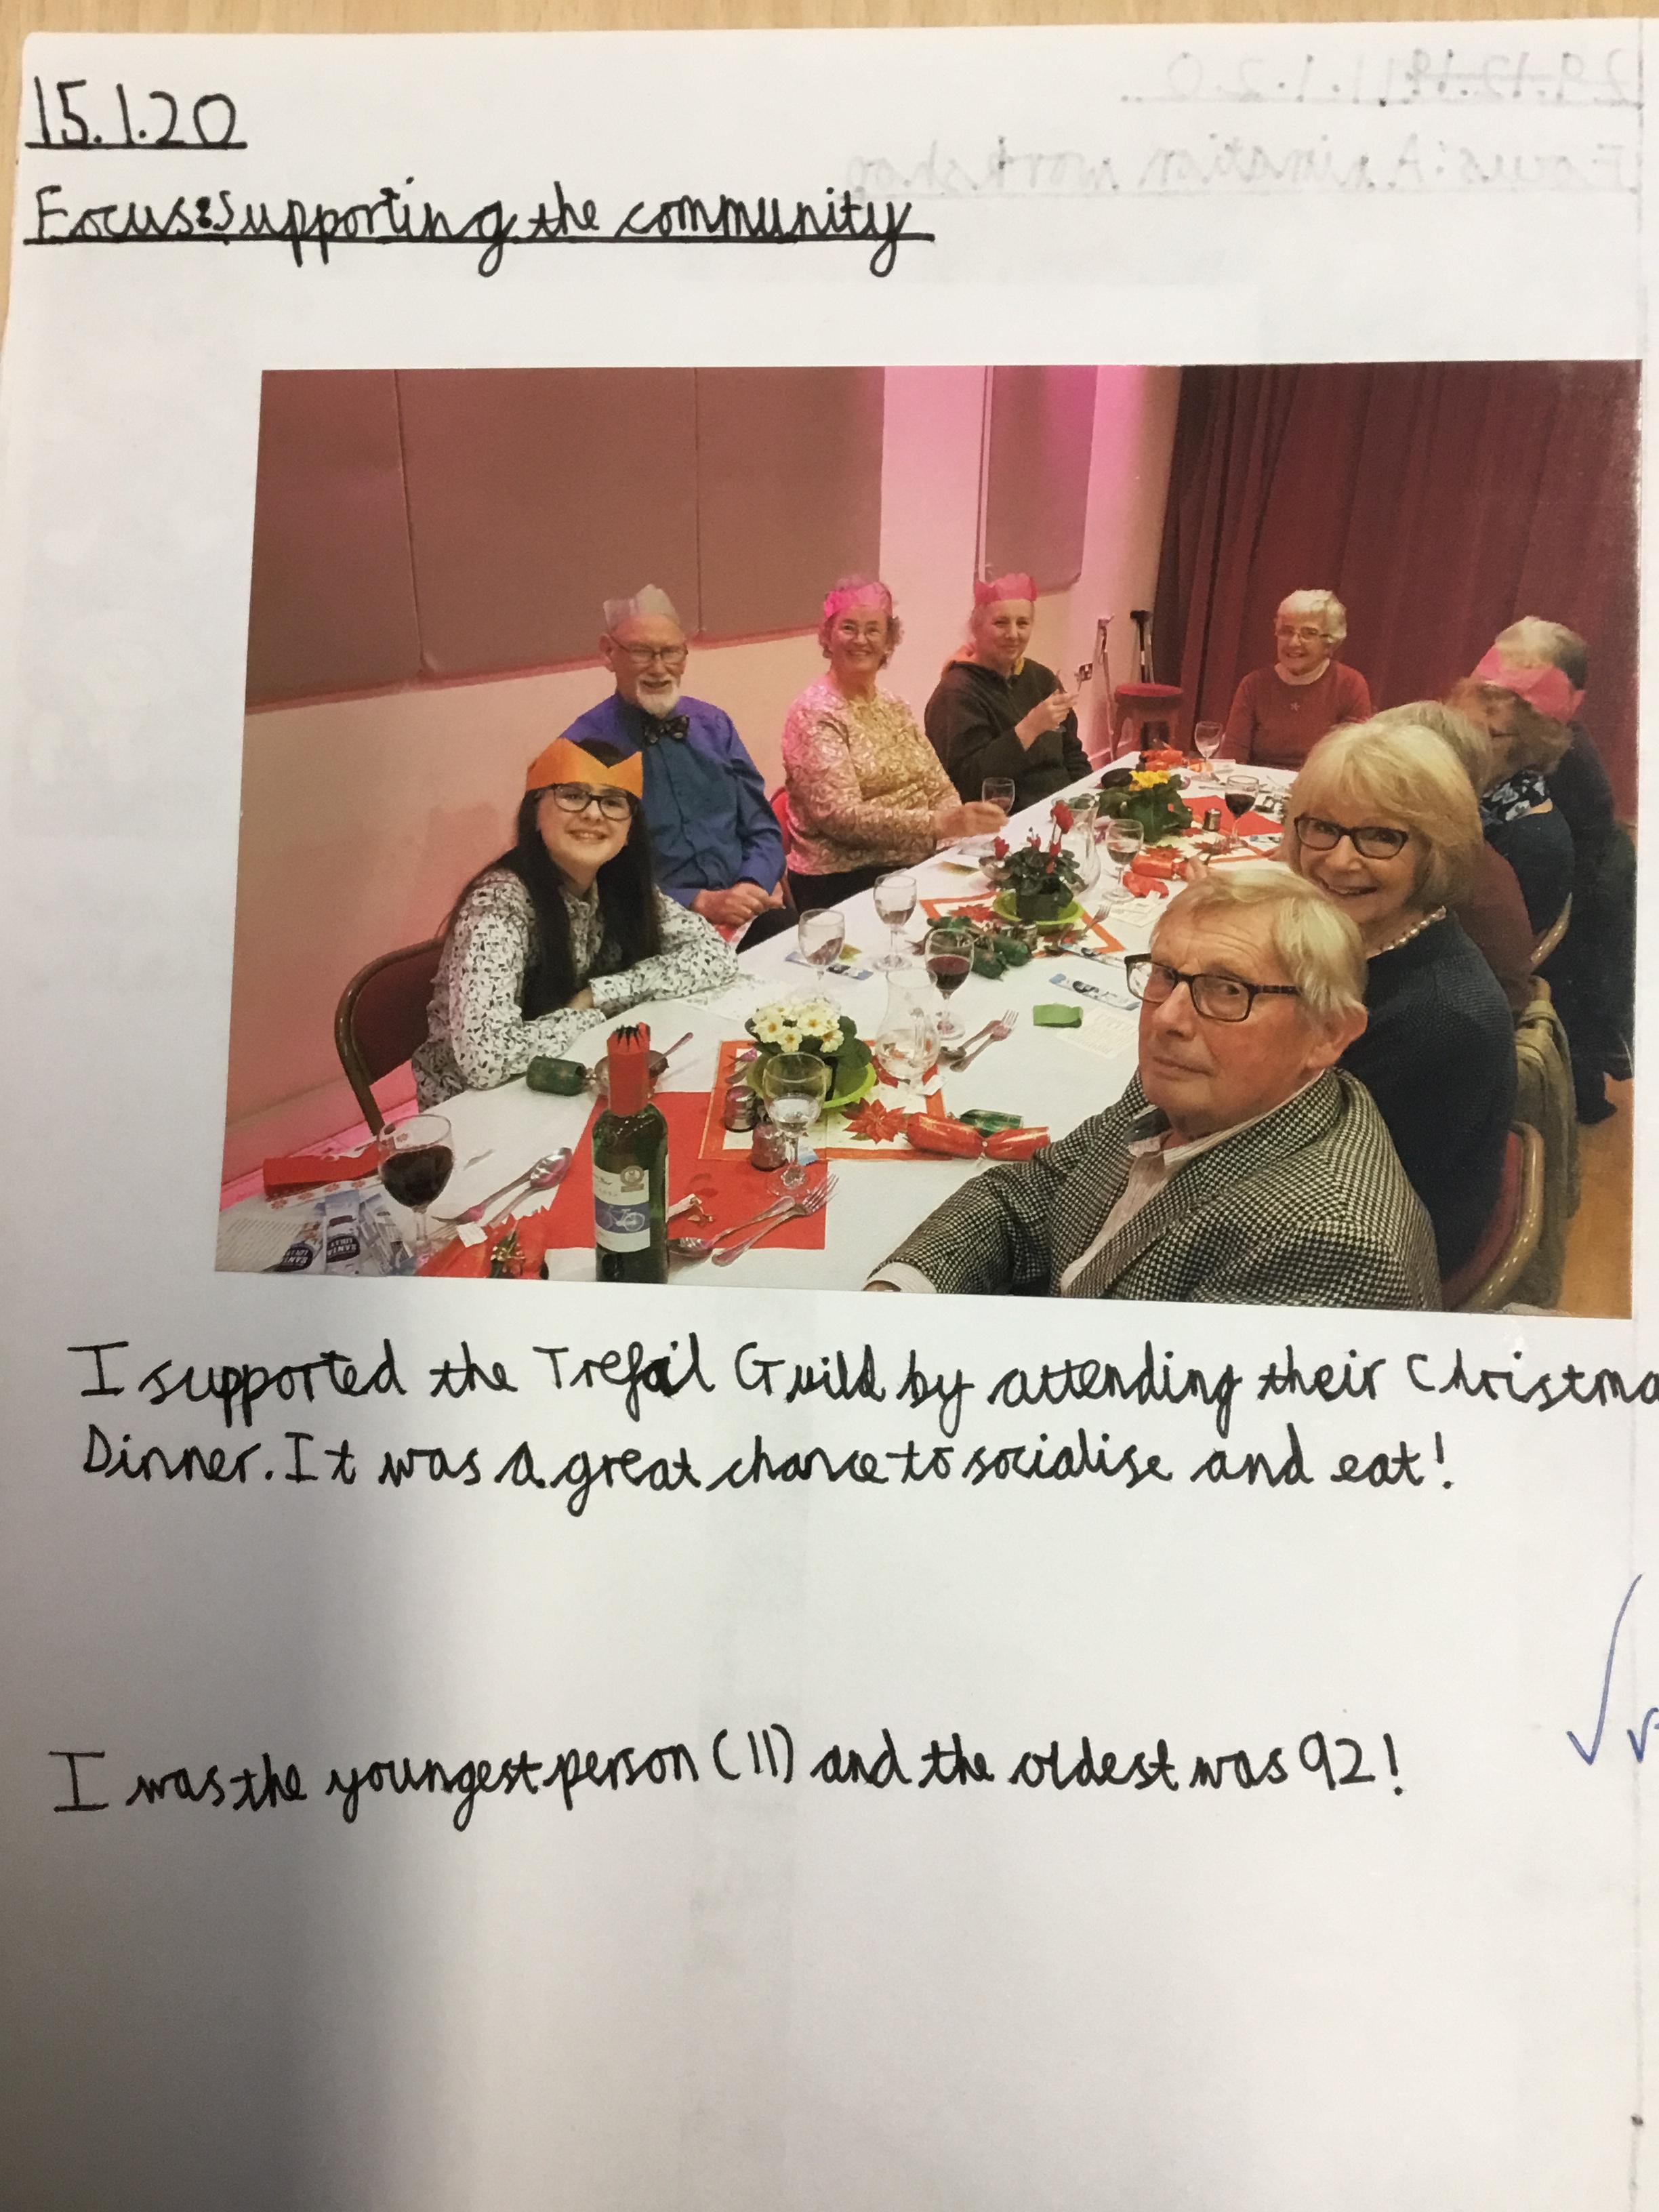 15.1.20
Focus: Supporting the community
I supported the Trefoil Guild by attending their Christma
Dinner. It was a great chance to socialise and eat!
I was the youngest person (11) and the oldest was 92!